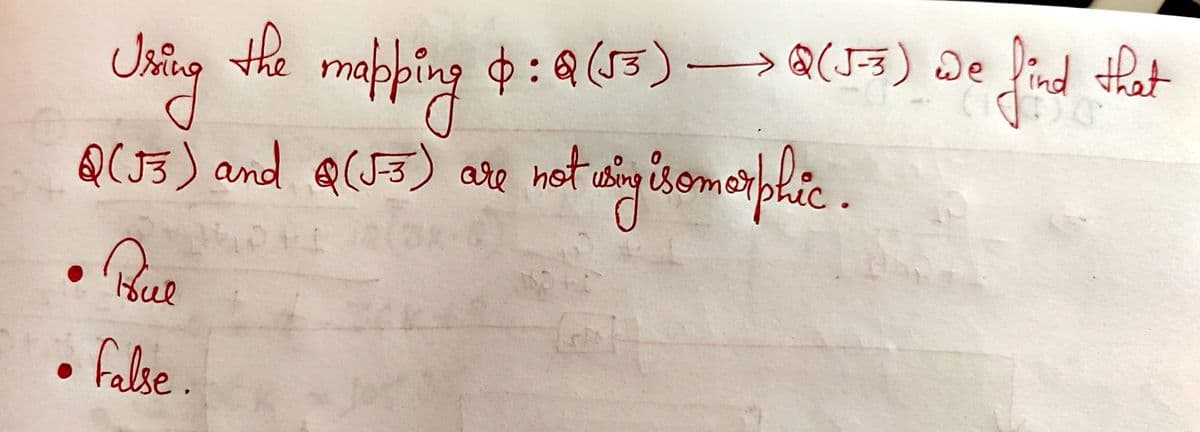 Using the mapping φ : Q(√3) ⟶ Q(√-3) we find that
Q(√3) and Q(√-3) are not using isomorphic.
• True
• False.